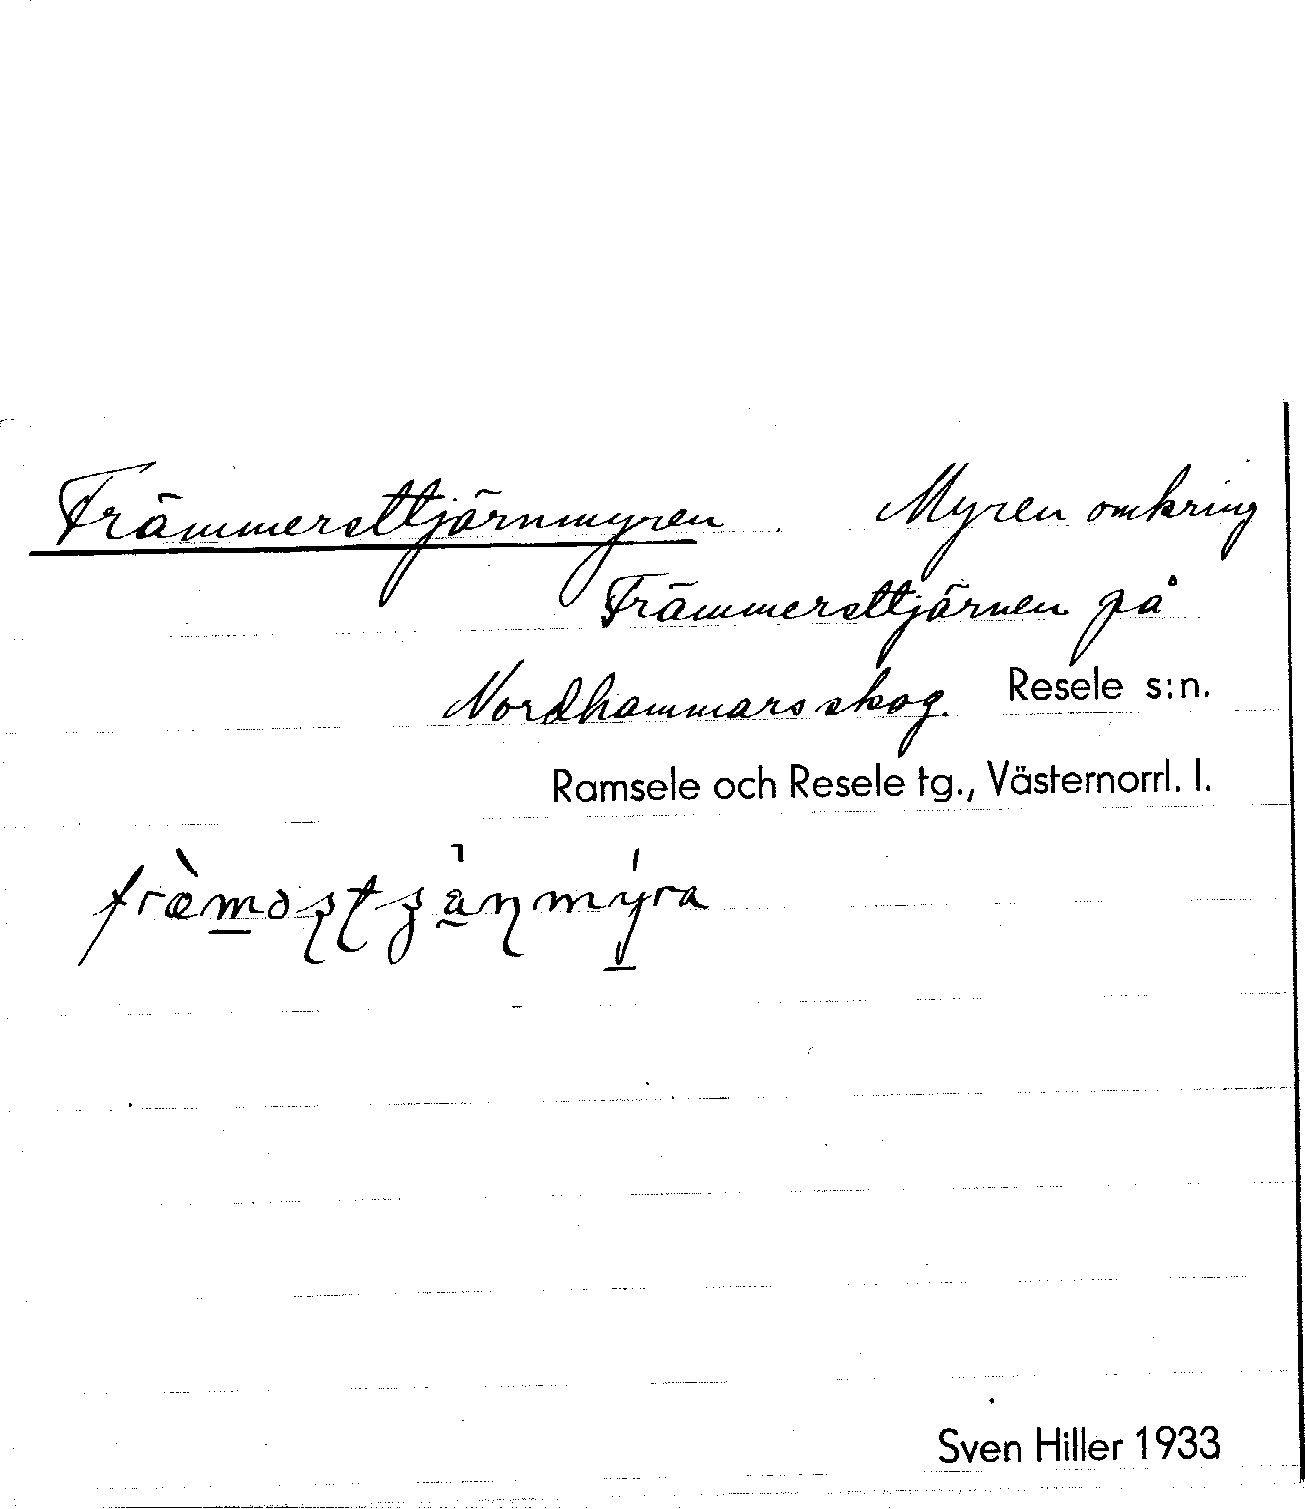 Främmersttjärnmyren. Myren omkring
Främmersttjärnen på
Nordhammarsskog. Resele s:n.
Ramsele och Resele tg., Västernorrl. l.
Sven Hiller 1933